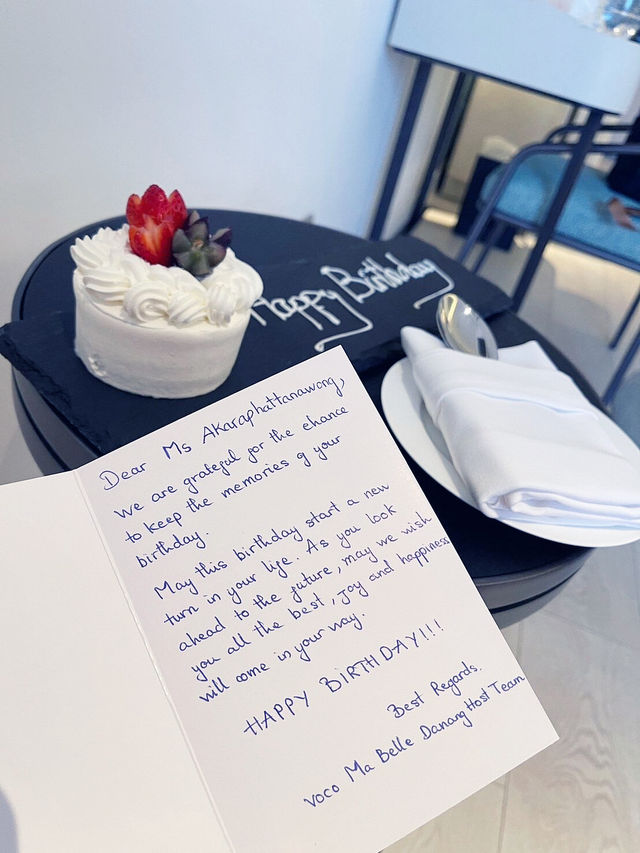 Happy Birthday
Dear Ms Akaraphattanawong,
We are grateful for the chance
to keep the memories of your
birthday.
May this birthday start a new
turn in your life. As you look
ahead to the future, may we wish
you all the best, joy and happiness
will come in your way.
HAPPY BIRTHDAY!!!
Best Regards.
voco Ma Belle Danang Host Team